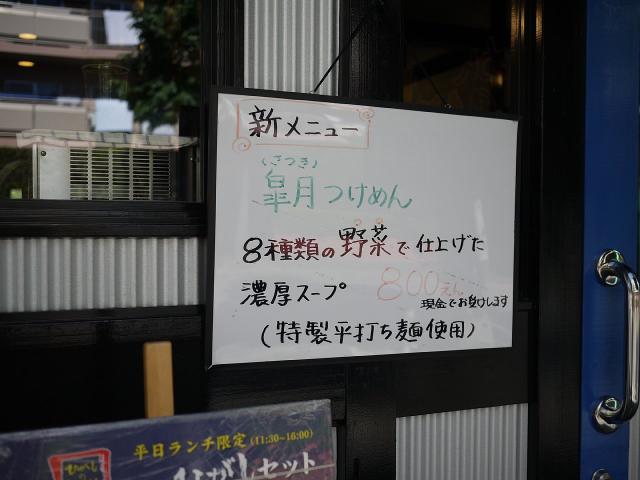 新メニュー
(さつき)
皐月つけめん
8種類の野菜で仕上げた
濃厚スープ 800えん
現金でお受けします
(特製平打ち麺使用)
平日ランチ限定(11:30~16:00)
ひがしセット